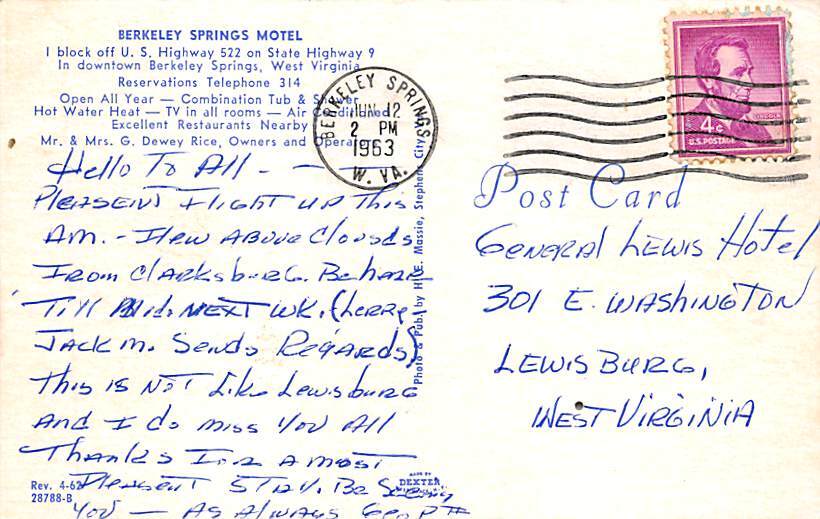 BERKELEY SPRINGS MOTEL
1 block off U. S. Highway 522 on State Highway 9
In downtown Berkeley Springs, West Virginia
Reservations Telephone 314
Open All Year — Combination Tub & Shower
Hot Water Heat — TV in all rooms — Air Conditioned
Excellent Restaurants Nearby
Mr. & Mrs. G. Dewey Rice, Owners and Operators
Hello To All - —
PleasenT Flight up This
Am. - Flew Above Clouds
From Clarksburg. Be here
Till Mid. Next wk. (Larry
Jack M. Sends Regards)
This is NoT Like Lewisburg
And I do miss you All
Thanks For A most
PleasenT STAy. Be Seeing
you — As Always
Rev. 4-62
28788-B
MADE BY
DEXTER
Photo & Pub. by H. E. Massie, Stephens City
BERKELEY SPRINGS
JUN 12
2 PM
1963
W. VA.
LINCOLN
4¢
U.S. POSTAGE
Post Card
General Lewis Hotel
301 E. Washington
Lewisburg,
West Virginia